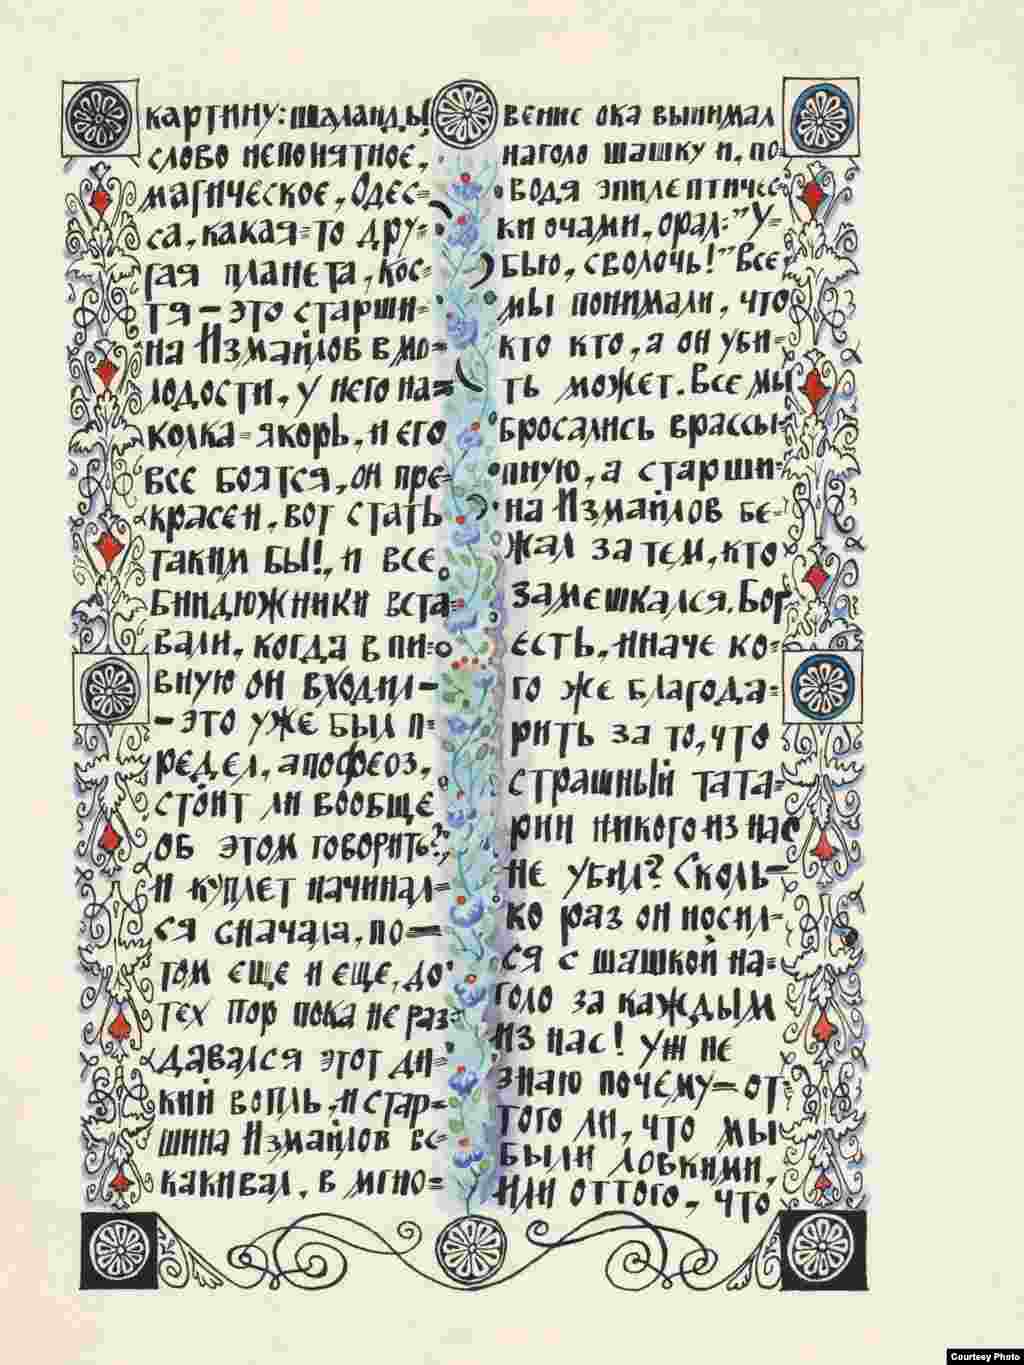 картину: шаланды,
слово непонятное,
магическое, Одес=
са, какая=то дру=
гая планета, Кос=
тя – это старши=
на Измайлов в мо=
лодости, у него на=
колка=якорь, и его
все боятся, он пре=
красен, вот стать
таким бы!, и все
биндюжники вста=
вали, когда в пи=
вную он входил –
– это уже был п=
редел, апофеоз,
стоит ли вообще
об этом говорить?,
и куплет начинал=
ся сначала, по=
том еще и еще, до
тех пор пока не раз=
давался этот ди=
кий вопль, и стар=
шина Измайлов вс=
какивал, в мгно=
вение ока вынимал
наголо шашку и, по=
водя эпилептичес=
ки очами, орал: "У=
бью, сволочь!" Все
мы понимали, что
кто кто, а он уби=
ть может. Все мы
бросались врассы=
пную, а старши=
на Измайлов бе=
жал за тем, кто
замешкался. Бог
есть, иначе ко=
го же благода=
рить за то, что
страшный тата=
рин никого из нас
не убил? Сколь=
ко раз он носил=
ся с шашкой на=
голо за каждым
из нас! Уж не
знаю почему – от
того ли, что мы
были ловкими,
или оттого, что
Courtesy Photo